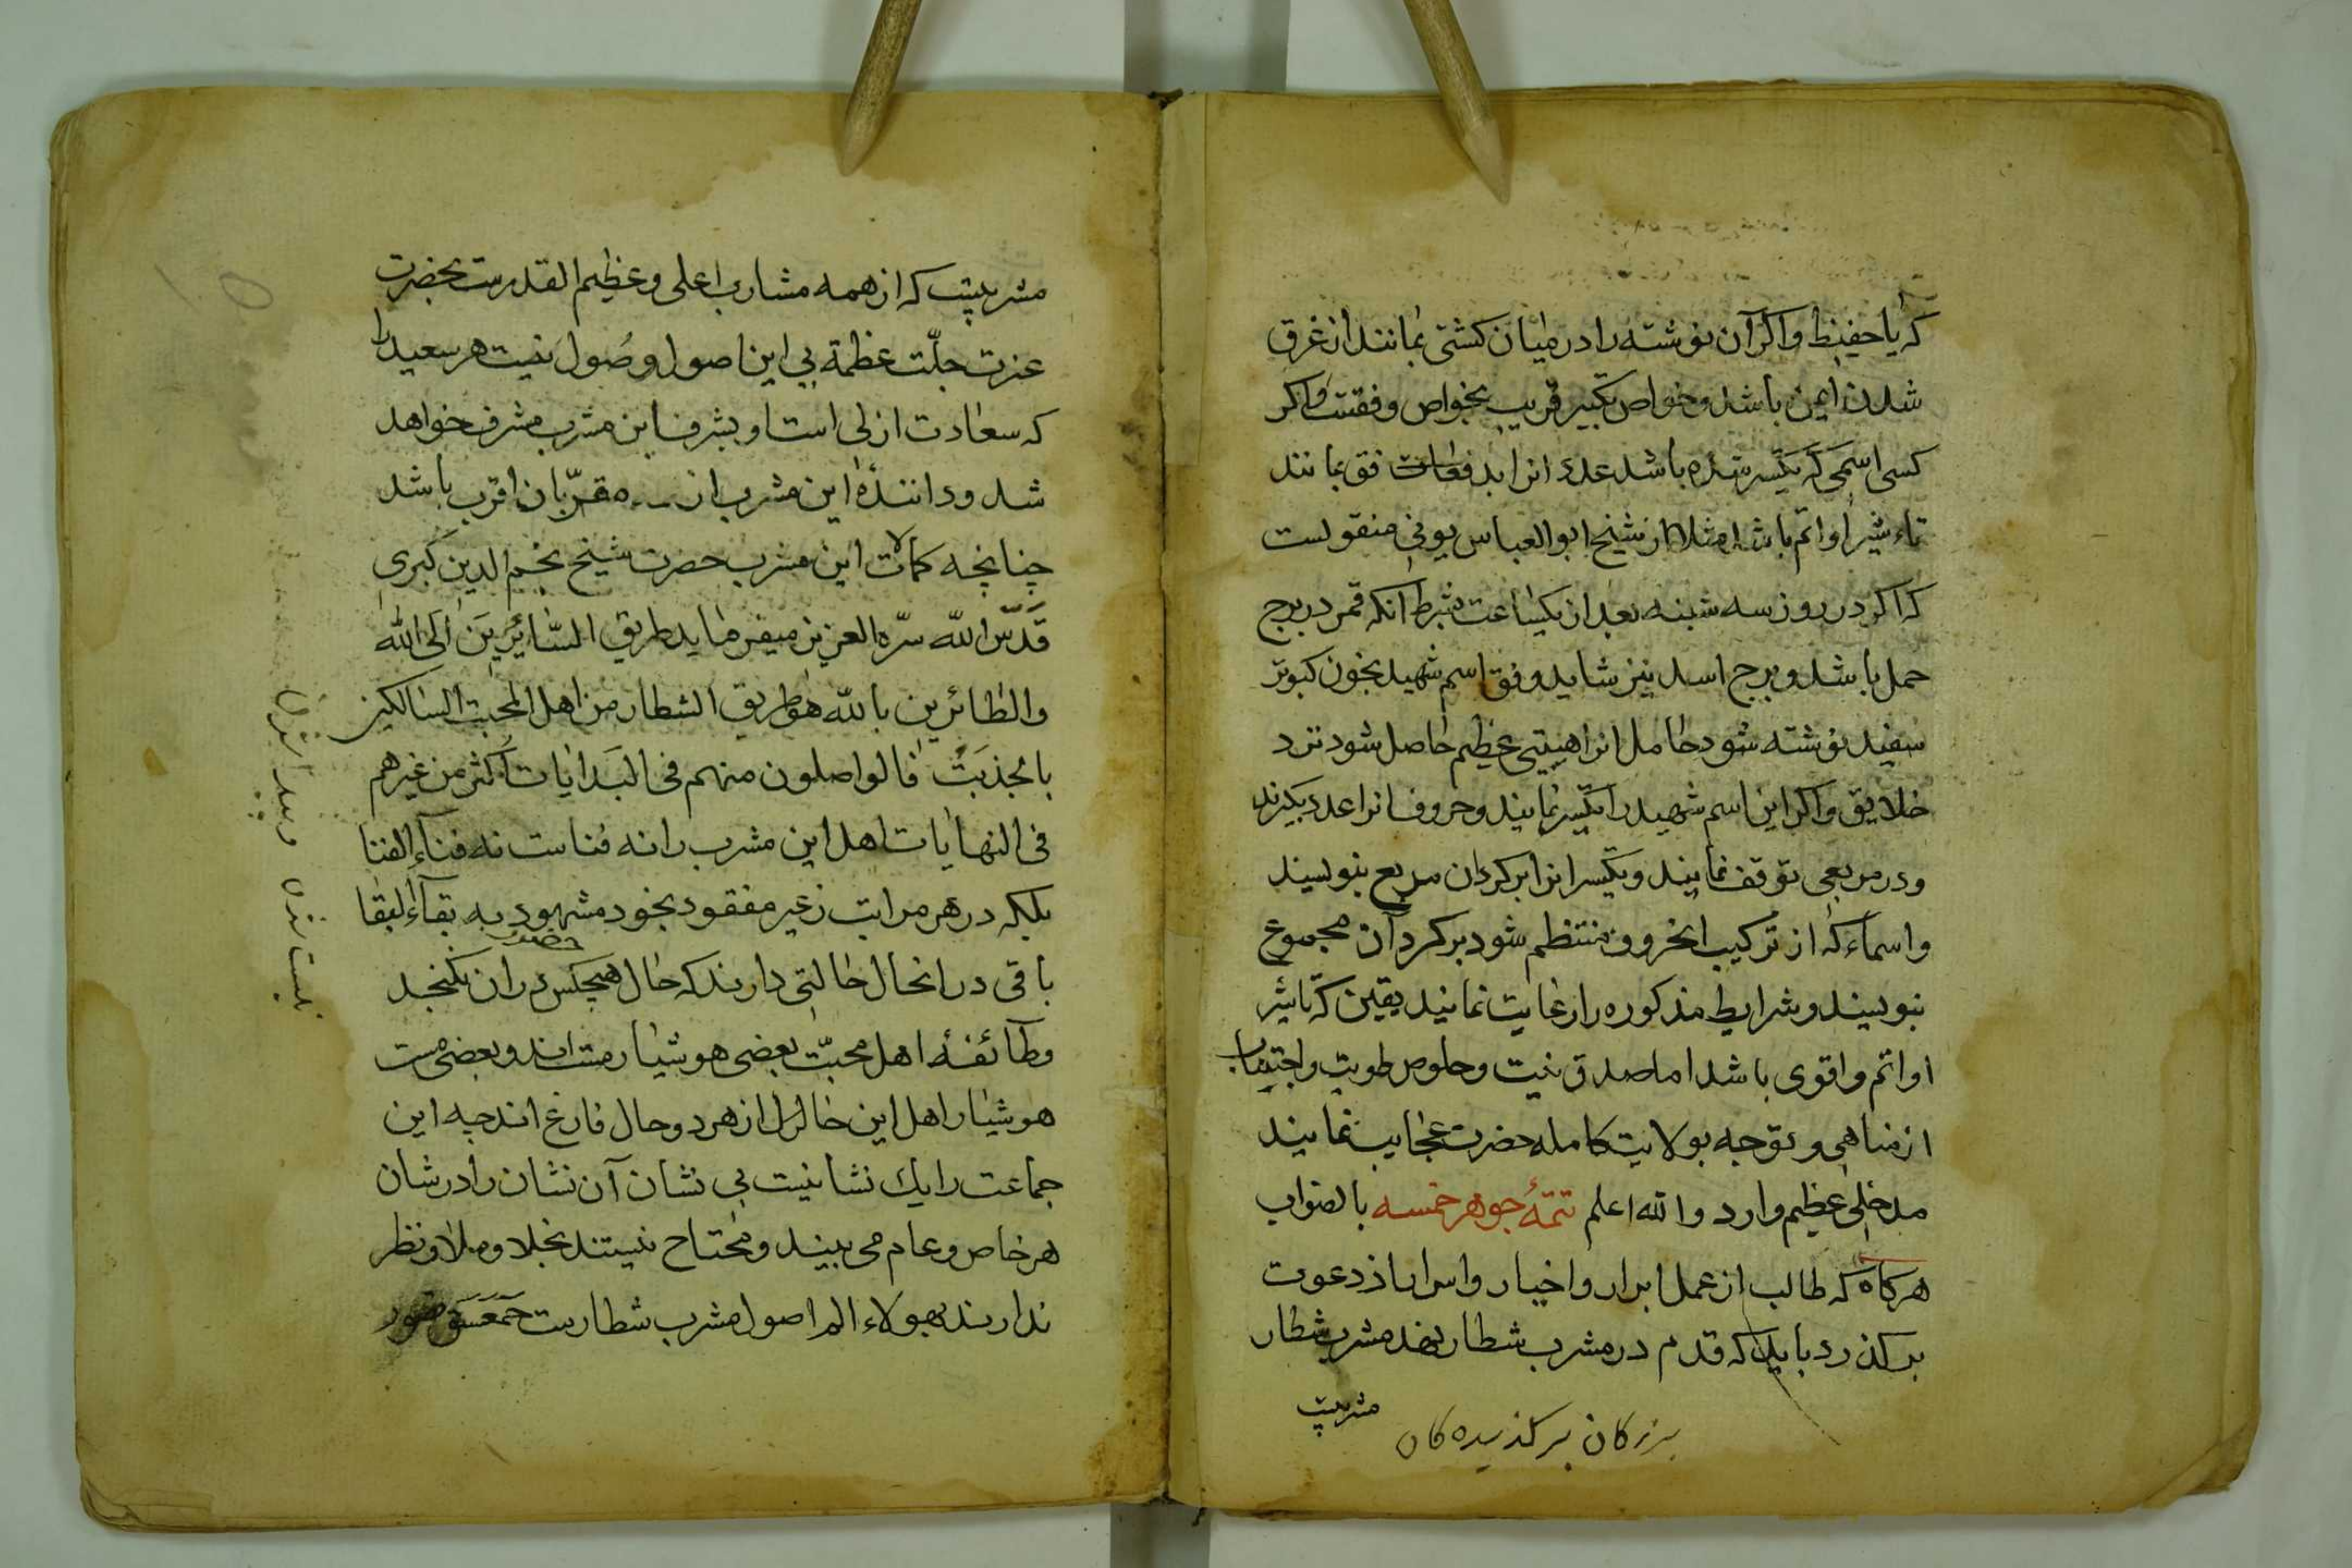 که یا حفیظ و اکر آن نوشته را در میان کشتی نمانند از غرق
شدن ایمن باشد و خواص تکسیر قریب بخواص وفقست و اکر
کسی اسمی که تکسیر شده باشد عدد انرا بدفعات فق نمانند
تاء شیر او اتم باشد مثلا از شیخ ابو العباس بونی منقولست
که اکر در روز سه شبنه بعد از یکساعت بشرط انکه قمر در برج
حمل باشد و برج اسد نیز شاید وفق اسم شهید بخون کبوتر
سفید نوشته شود حامل انرا هیبتی عظیم حاصل شود نزد
خلایق و اکر این اسم شهید را تکسیر نمایند و حروف انرا عدد بکیرند
و در مربعی توقف نمایند و تکسیر انرا بر کردان مربع بنویسند
و اسماء که از ترکیب انحروف منتظم شود بر کرد آن مجموع
بنویسند و شرایط مذکوره را رعایت نمایند یقین که تاثیر
او اتم و اقوی باشد اما صدق نیت و خلوص طویت و اجتناب
از مناهی و توجه بولایت کامله حضرت عجایب نمایند
مدخلی عظیم وارد والله اعلم تتمهٔ جوهر خمسه بالصواب
هرکاه که طالب از عمل ابرار و اخیار و اسرار از دعوت
برکذرد باید که قدم در مشرب شطار نهد مشرب شطار
مشربیت
برزکان برکذیده کان
مشربیت که از همه مشارب اعلی و عظیم القدرست بحضرت
عزت جلّت عظمة بی این اصول وصُول نیست هر سعید را
که سعادت ازلی است او بشرف این مشرب مشرف خواهد
شد و دانندهٔ این مشرب از مقرّبان اقرب باشد
چنانچه کمالات این مشرب حضرت شیخ نجم الدین کبری
قَدّس الله سرّه العزیز میفرماید طریق السّائِرِینَ اِلَی اللّٰه
والطائرین بالله هو طریق الشطار من اهل المحبت السالکین
بالجذبَتْ فالواصلون منهم فی البَدایات اکثر من غیرهم
فی النهایات اهل این مشرب را نه فناست نه فناء الفنا
بلکه در هر مراتب ز غیر مفقود بخود مشهود به بقآء البقا
باقی در انحال حالتی دارند که حال هیچکس در ان نکنجد
وطآئفهٔ اهل محبّت بعضی هوشیار مست اند و بعضی مست
هوشیار اهل این حال از هر دو حال فارغ اند چه این
جماعت را یك نشانیست بی نشان آن نشان را در شان
هر خاص و عام می بیند و محتاح نیستند بخلا و ملا و نظر
ندارند بهولاء المر اصول مشرب شطارست حمعسق
نیست شدن و پیدا شدن